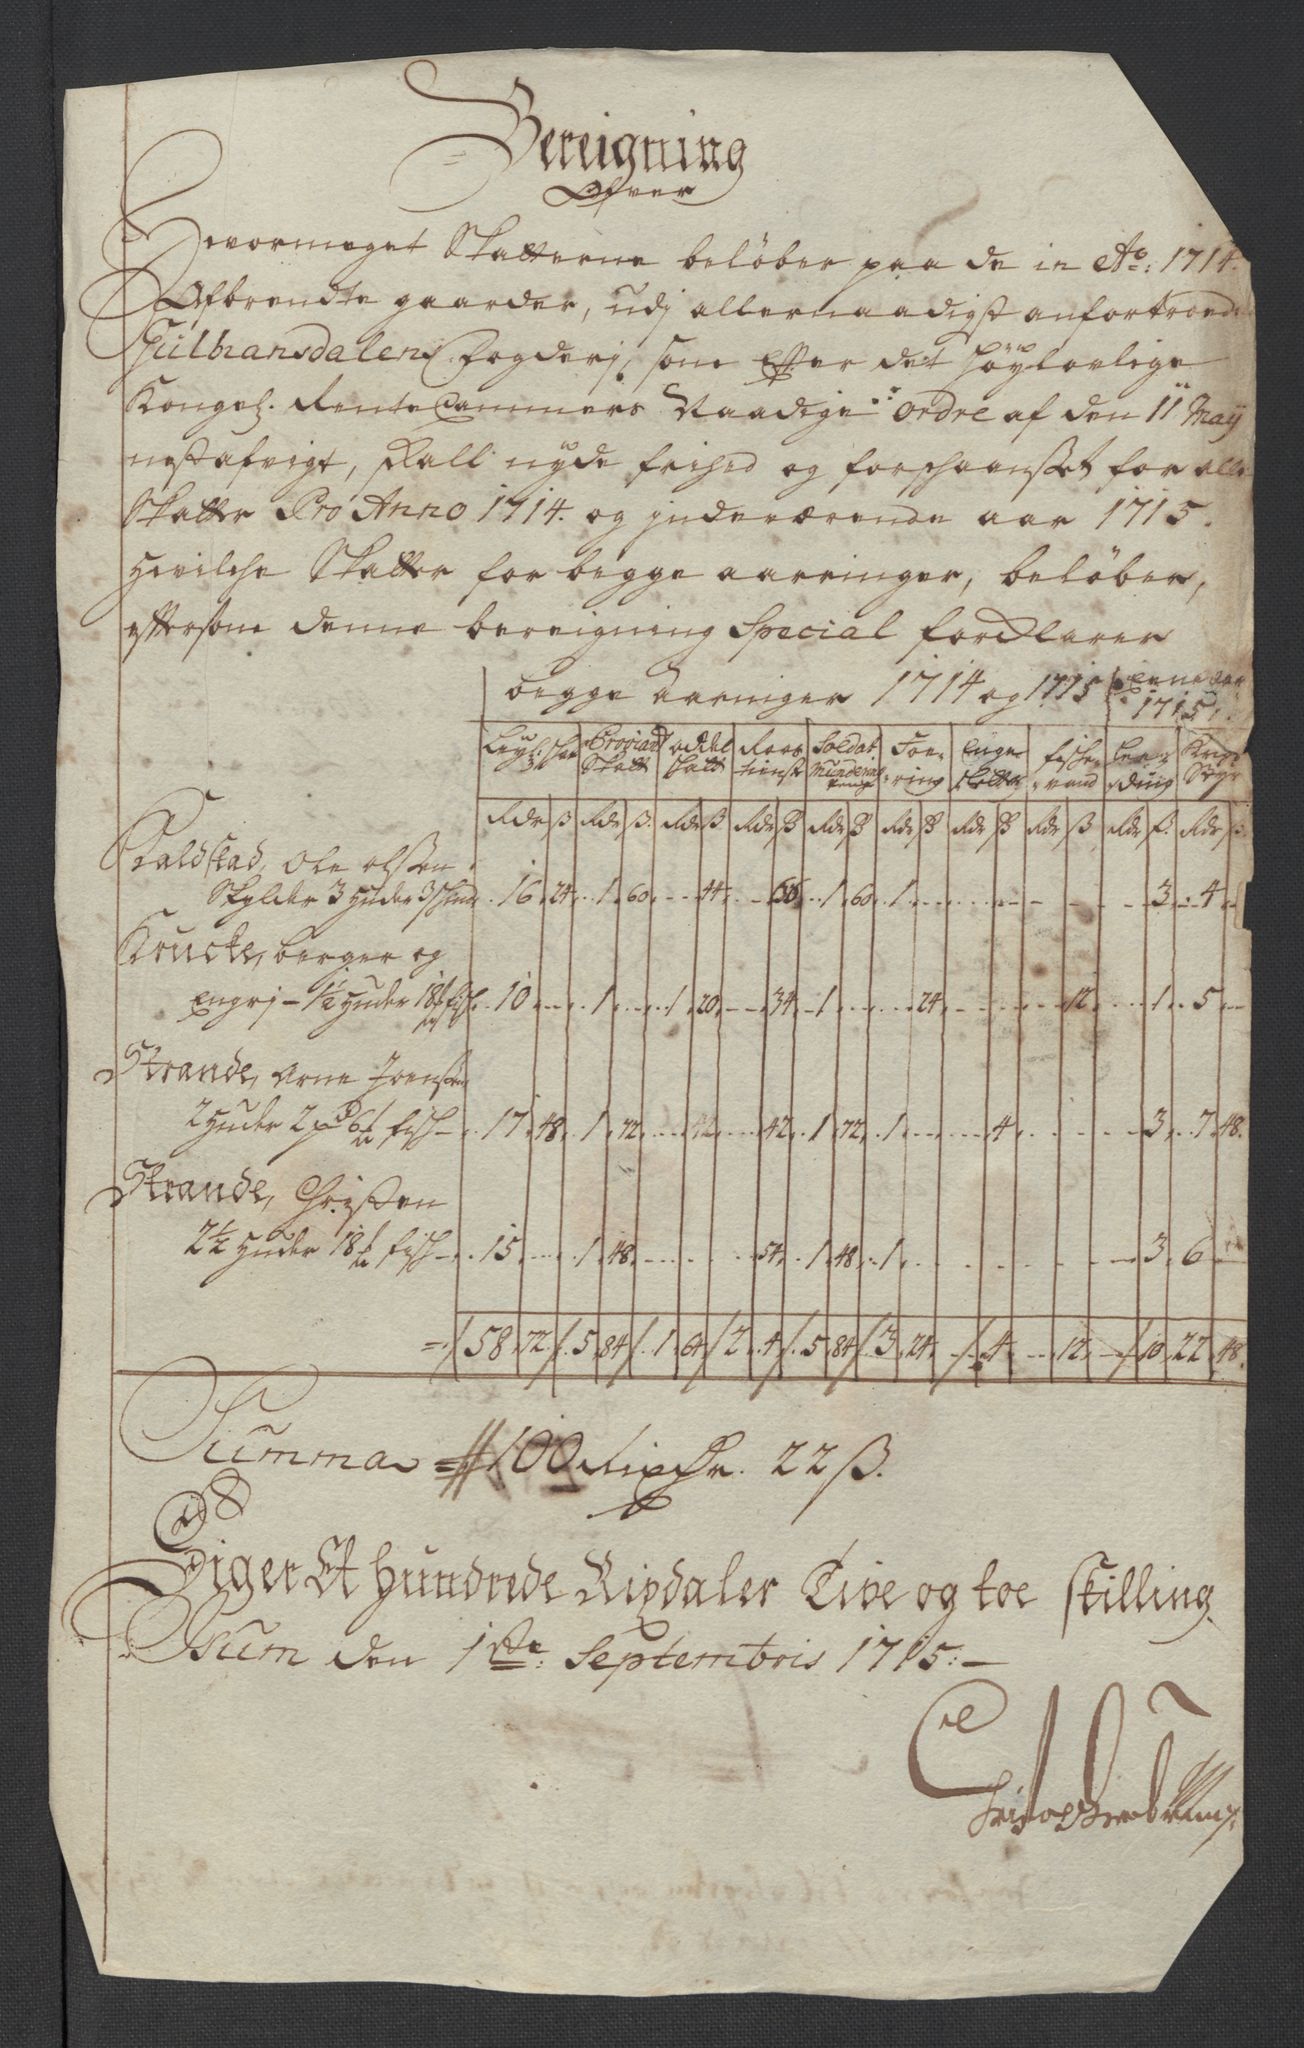 Bereigning
Ofver
Hvormeget Skatterne beløber paa de in Ao: 1714.
Afbrendte gaarder, udj allernaadigst anfortroede
Gulbransdalens fogderj, som effter det høylovlige
Kongel. Rente Cammers Naadige ordre af den 11 May
nest afvigt, skall nyde frihed og forschaanset for alle
Skatter Pro Anno 1714. og indeværende aar 1715.
Hvilche Skatter for begge aaringer, beløber,
effersom denne bereigning Special forklarer
begge aaringer 1714 og 1715 Denne aar
1715
Proviant Odel Ross Soldat Foe- fische-
Skatt skatt tieniste Mundering ring vand
Rdr ß Rdr ß Rdr ß Rdr ß Rdr ß Rdr ß Rdr ß Rdr ß Rdr ß Rdr ß
Kaldstad, Ole olssen
Skylder 3 huder 3 schind 16 24 1 60 44 1 60 1 3 4
Krucke, berger og
Engrj - 1½ huder 18 fisch 10 1 1 20 34 1 24 12 1 5
Strande, Arne Joenssen
2 huder 2 pd 6 fisch 17 48 1 72 42 1 72 1 4 3 7 48
Strande, Christen
2½ huder 18 fisch 15 1 48 54 1 48 1 3 6
58 72 5 84 1 64 2 4 5 84 3 24 4 12 10 22 48
Summa 100 Rixdr. 22 ß.
Siger Et hundrede Rixdaler Tive og toe skilling
den 1ste Septembris 1715